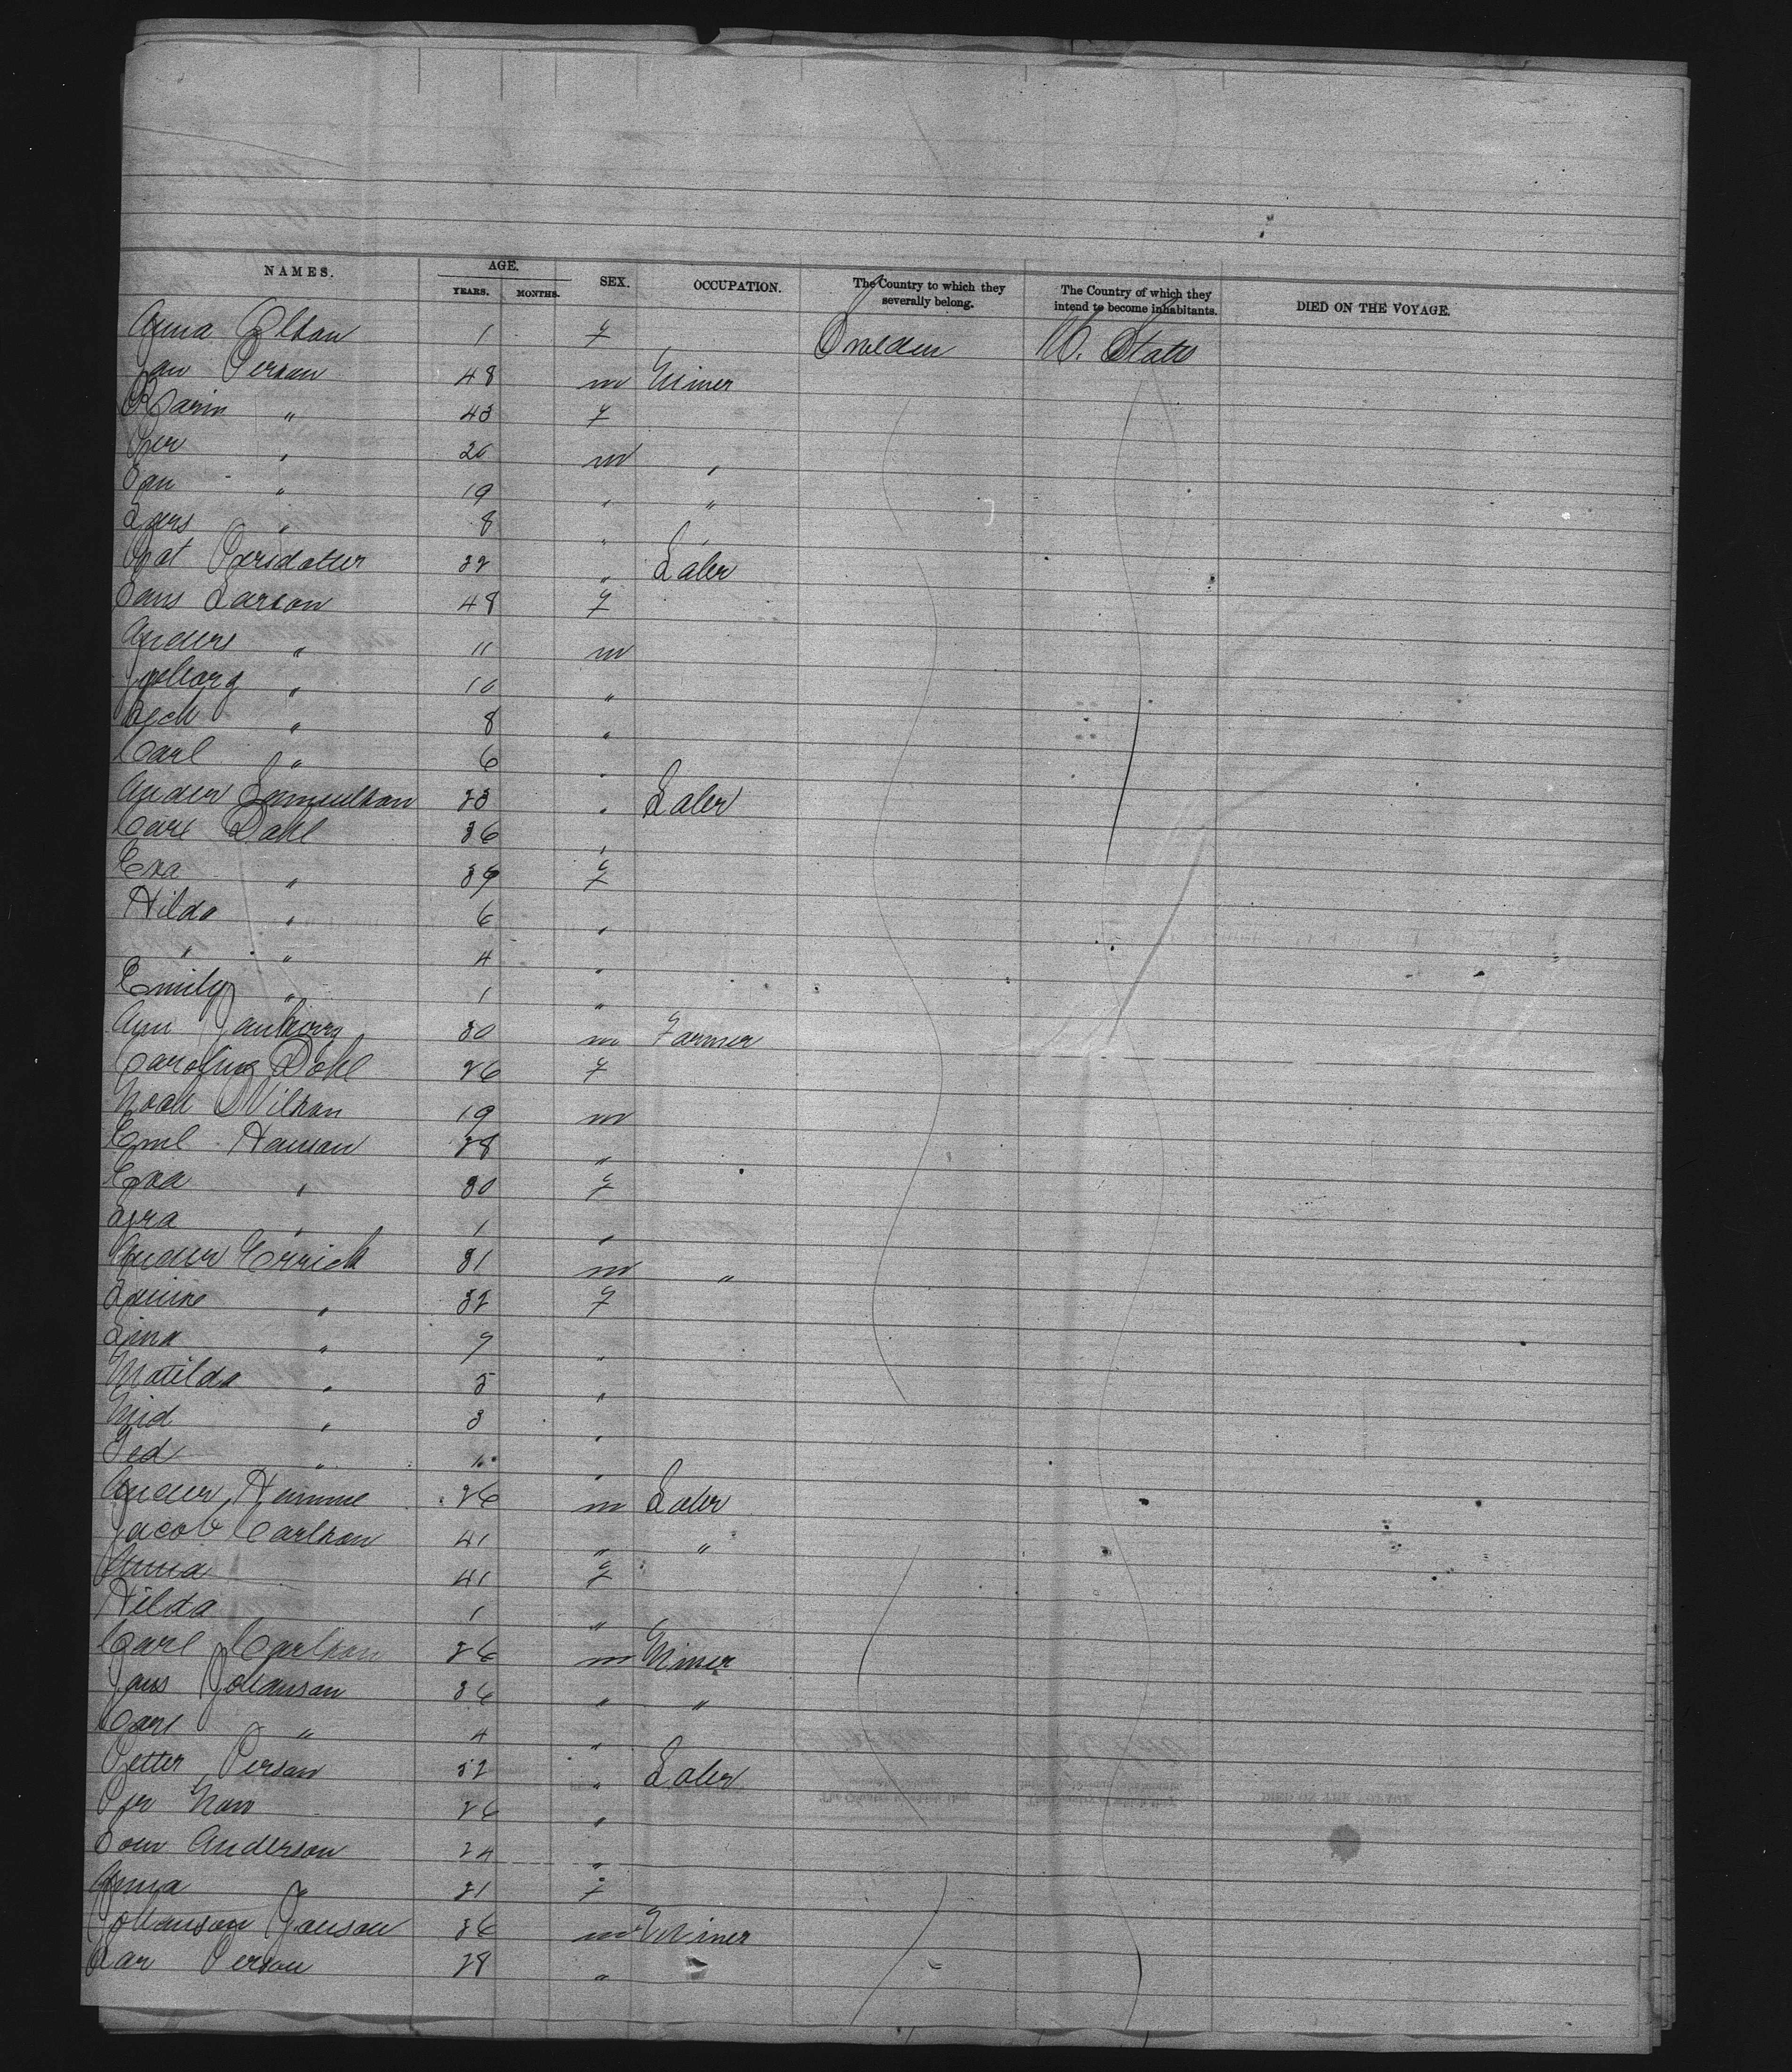 NAMES. AGE. SEX. OCCUPATION. The Country to which they severally belong. The Country of which they intend to become inhabitants. DIED ON THE VOYAGE.
YEARS. MONTHS.
Anna Olson 1 f Sweden U. States
Jan Person 48 m Miner
Karin " 43 f
Per " 20 m "
Jan " 19 " "
Lars " 8 " "
Persdatter 32 " Labr
Larson 48 f
Anders " 11 m
" 10 "
" 8 "
Carl " 6 "
Ander Samuelson 23 " Labr
Carl Dahl 36 "
Eva " 39 f
Hilda " 6 "
" " 4 "
Emily " 1 "
30 m Farmer
Carolina Dahl 26 f
Noak Nilson 19 m
Emil Hanson 28 "
Eva " 30 f
" 1 "
Ander Errick 31 m "
" 32 f
Lina " 9 "
Matilda " 5 "
" 3 "
"  "
Ander 26 m Labr
Jacob Carlson 41 " "
Anna 41 f
Hilda 1 "
Carl Carlson 26 m Miner
Johanson 36 " "
Carl " 4 "
Petter Person 32 " Labr
Per 26 "
Anderson 24 "
Anna " 21 f
Johanson Janson 36 m Miner
Person 28 "